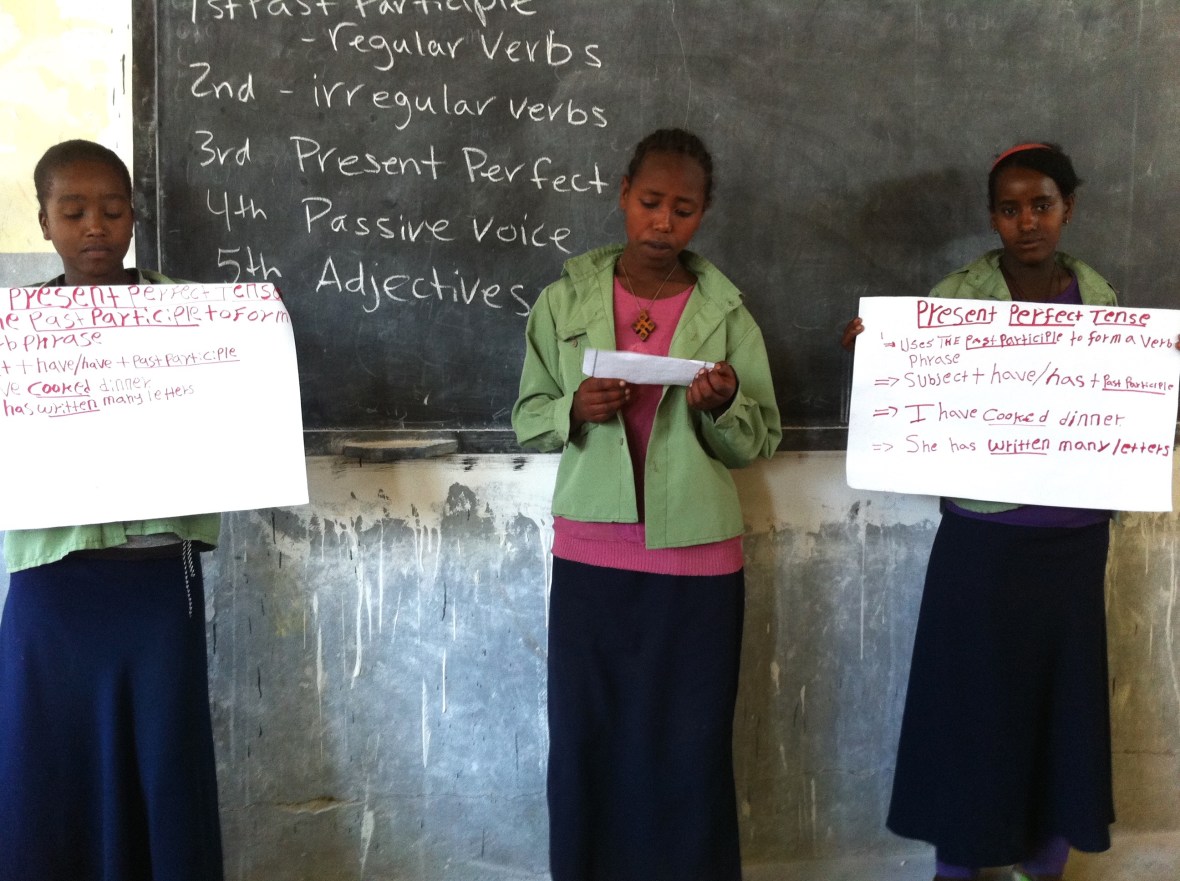 1st Past Participle
- regular Verbs
2nd - irregular verbs
3rd Present Perfect
4th Passive voice
5th Adjectives
Present Perfect Tense
Past Participle to form
Phrase
+ have/have + Past Participle
Cooked dinner
has written many letters
Present Perfect Tense
Uses THE Past Participle to form a Verb
Phrase
=> Subject + have/has + Past Participle
=> I have Cooked dinner
=> She has written many letters